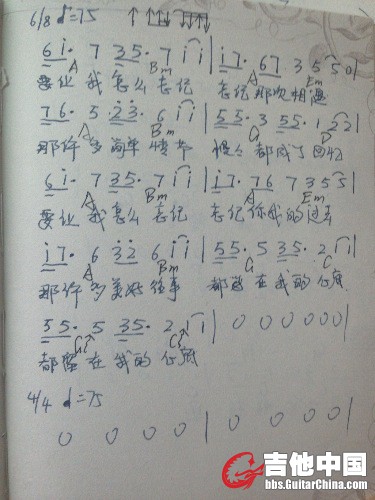 6/8 ♩=75 ↑ ↑↑↓↓ ↑↑↓↓
6 i· 7 35· 7 i i | i7· 67 3 5 5 0|
A Bm A Em
要让 我 怎么 忘记 忘记 那次 相遇
76· 5 ·23· 6 i i | 55· 3 55· 1 22|
A Bm G D
那许 多 简单 情节 都成了 回忆
6 i· 7 35· 7 i i | i7· 76 7 3 5 5|
A Bm A Em
要让 我 怎么 忘记 忘记 你 我的 过去
i7· 6 32 6 i i | 55· 5 35· 2 i i|
A Bm G C
那许 多 美好 往事 都留 在 我的 心底
55· 5 35· 2 i i | 0 0 0 0 0 0|
G C
都留 在 我的 心底
4/4 ♩=75
0 0 0 0 | 0 0 0 0|
吉他中国
bbs.GuitarChina.com